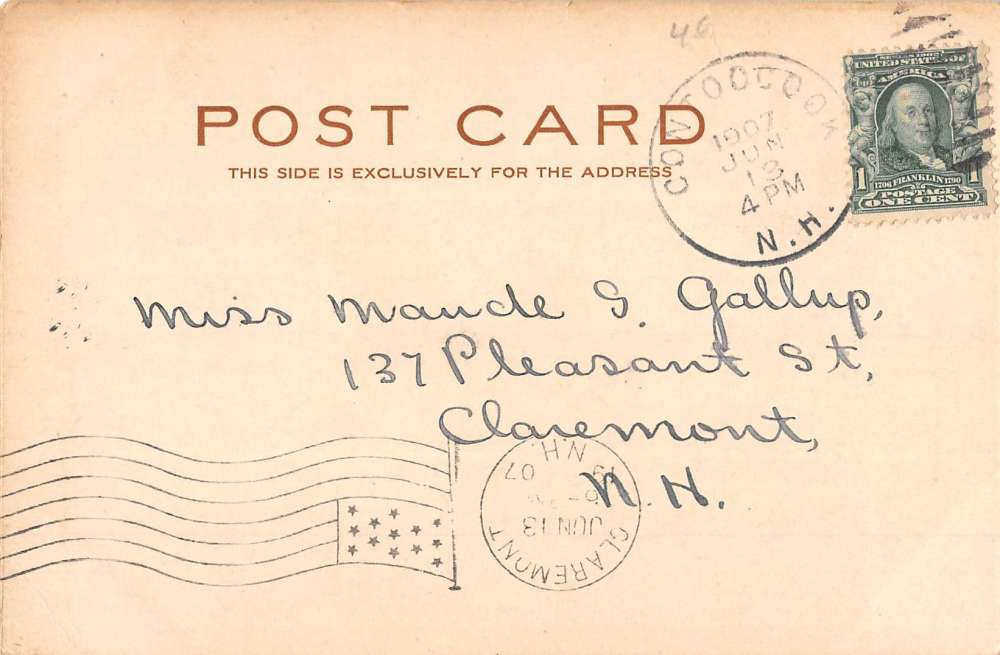 46
POST CARD
THIS SIDE IS EXCLUSIVELY FOR THE ADDRESS
CONTOOCOOK
1907
JUN
13
4 PM
N.H.
SERIES 1902
UNITED STATES OF
AMERICA
1 1706 FRANKLIN 1790 1
POSTAGE
ONE CENT
Miss Maude G. Gallup,
137 Pleasant St,
Claremont,
N.H.
CLAREMONT
JUN 13
1907
N.H.